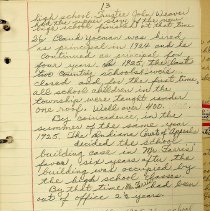 13
high school. Trustee John Weaver
high school
of that time
Clark Yeoman was hired
as principal in 1924 and is
continued as principal for
four years. In 1925, the last
two country schools were
closed and, for the first time,
all school children in the
township were taught under
one roof. Well over 400.
By coincidence, in the
summer of the same year
1925 The Indiana Court of Appeals
decided the school
building case in Mr. Faris'
favor six years after the
building was occupied by
the high school classes.
By that time he had been
out of office 2 ½ years.